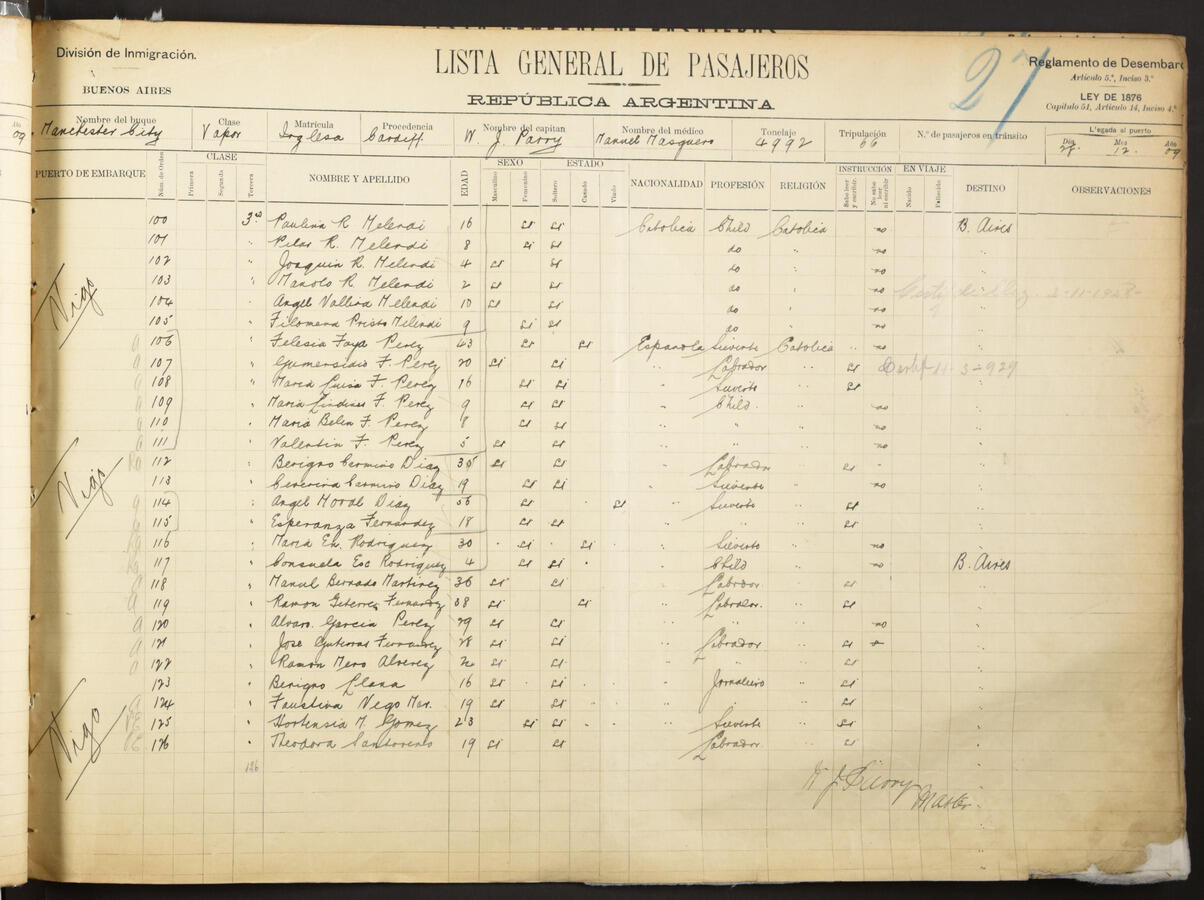 División de Inmigración.
BUENOS AIRES
LISTA GENERAL DE PASAJEROS
REPÚBLICA ARGENTINA
27
Reglamento de Desembarc
Artículo 5.º, Inciso 3.º
LEY DE 1876
Capítulo 51, Artículo 14, Inciso 4.º
Nombre del buque Clase Matrícula Procedencia Nombre del capitan Nombre del médico Tonelaje Tripulación N.º de pasajeros en tránsito Llegada al puerto
Manchester City Vapor Inglesa Cardiff W. J. Parry Manuel Masquero 4992 66 Día 28 Mes 12 Año 09
PUERTO DE EMBARQUE Núm. de Orden CLASE Primera Segunda Tercera NOMBRE Y APELLIDO EDAD SEXO Masculino Femenino ESTADO Soltero Casado Viudo NACIONALIDAD PROFESIÓN RELIGIÓN INSTRUCCIÓN Sabe leer y escribir No sabe leer ni escribir EN VIAJE Nacido Fallecido DESTINO OBSERVACIONES
100 3ra Paulina R Melendi 16 si si Catolica Child Catolica no B. Aires
101 " Pilar R. Melendi 8 si si do " no
102 " Joaquin R. Melendi 4 si si do " no
Vigo 103 " Manolo R. Melendi 2 si si do " no
104 " Angel Vallina Melendi 10 si si do " no 2-11-1928-
105 " Filomena Prieto Melendi 9 si si do " no
106 " Felesia Faya Perez 43 si si Española Sievente Catolica no
107 " Gumersidio F. Perez 20 si si " Labrador " si 11-3-929
108 " Maria Luisa F. Perez 16 si si " Sievente " si
109 " Maria F. Perez 9 si si " Child " no
110 " Maria Belen F. Perez 8 si si " " " no
111 " Valentin F. Perez 5 si si " " " no
Vigo 112 " Benigno Carmino Diaz 35 si si " Labrador " si
113 " Carmino Diaz 19 si si " Sievente " no
114 " Angel Moral Diaz 56 si si " Sievente " si
115 " Esperanza Fernandez 18 si si " " " si
116 " Maria Eh. Rodriguez 30 si si " Sievente " no
117 " Consuela Esc Rodriguez 4 si si " Child " no B. Aires
118 " Manul Bernado Martinez 36 si si " Labrador " si
119 " Ramon Geterrez Fernandez 38 si si " Labrador " si
120 " Alvaro Garcia Perez 29 si si " " " no
121 " Jose Gutierras Fernandez 28 si si " Labrador " si
122 " Ramon Mero Alverez si si " " " si
123 " Benigno Llana 16 si si " Jornalero " si
Vigo 124 " Faustina Vego Mar. 19 si si " " si
125 " Hortensia M. Gomez 23 si si " Sievente " si
126 " Theodora 19 si si " Labrador " si
126
W J Parry
Master